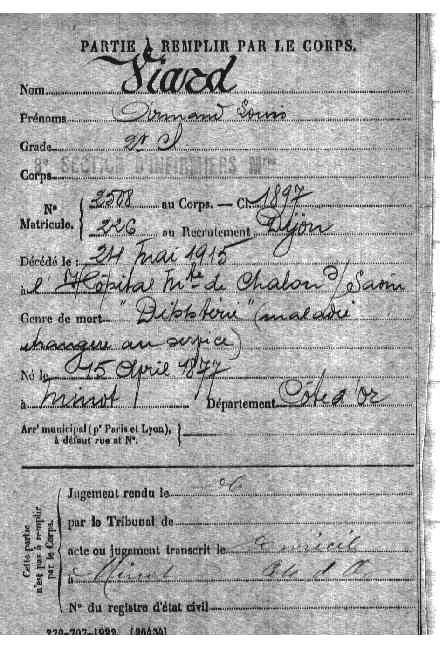 PARTIE À REMPLIR PAR LE CORPS.
Nom Viard
Prénoms Armand Louis
Grade 2e S
Corps 8e SECTION D'INFIRMIERS Mres
N° Matricule. { 2508 au Corps. — Cl. 1897
226 au Recrutement Dijon
Décédé le : 24 Mai 1915
à l'Hôpital Mte de Chalon s/ Saon
Genre de mort "Dipptérie" (maladie
étrangère au service)
Né le 15 April 1877
à Minot Département Côte d'Or
Arrt municipal (pr Paris et Lyon), à défaut rue et N°. {
Cette partie n'est pas à remplir par le Corps.
Jugement rendu le
par le Tribunal de
acte ou jugement transcrit le
à Minot
N° du registre d'état civil
270-707-1922. [26434]